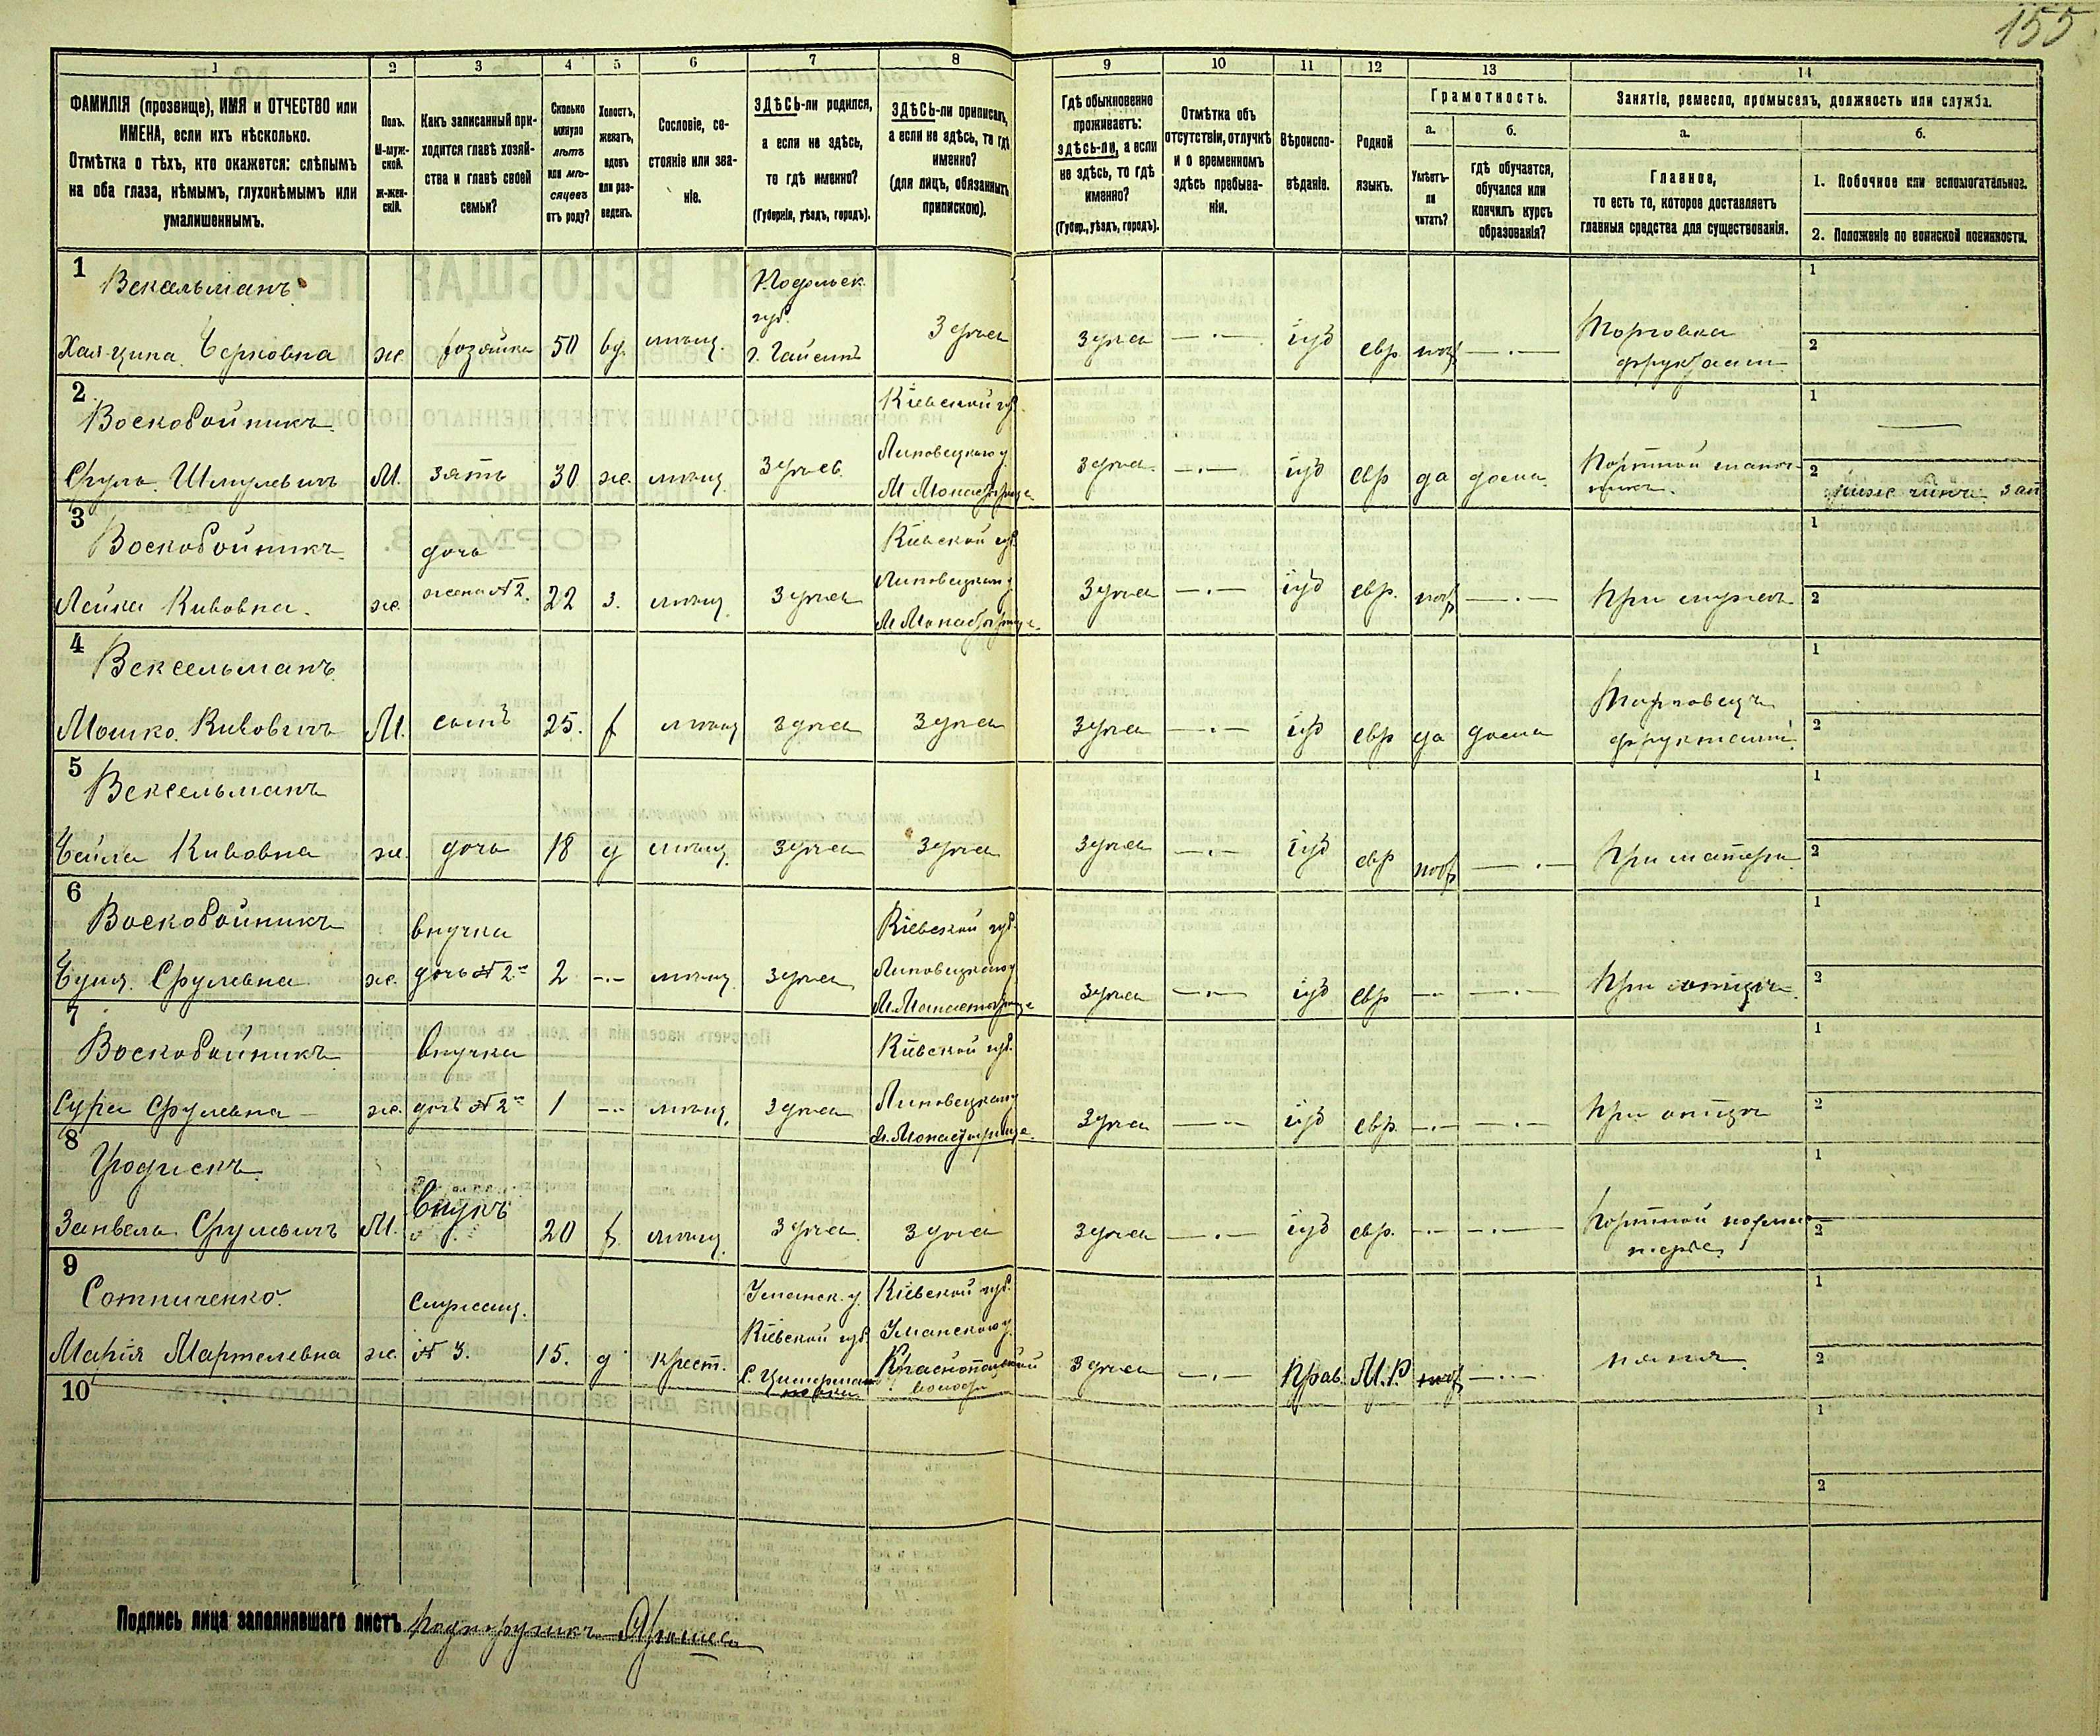 155
1 2 3 4 5 6 7 8 9 10 11 12 13 14
ФАМИЛІЯ (прозвище), ИМЯ и ОТЧЕСТВО или
ИМЕНА, если ихъ нѣсколько.
Отмѣтка о тѣхъ, кто окажется: слѣпымъ
на оба глаза, нѣмымъ, глухонѣмымъ или
умалишеннымъ.
Полъ.
М-муж-
ской.
Ж-жен-
скій.
Какъ записанный при-
ходится главѣ хозяй-
ства и главѣ своей
семьи?
Сколько
минуло
лѣтъ
или мѣ-
сяцевъ
отъ роду?
Холостъ,
женатъ,
вдовъ
или раз-
веденъ.
Сословіе, со-
стояніе или зва-
ніе.
ЗДѢСЬ-ли родился,
а если не здѣсь,
то гдѣ именно?
(Губернія, уѣздъ, городъ).
ЗДѢСЬ-ли приписанъ,
а если не здѣсь, то гдѣ
именно?
(для лицъ, обязанныхъ
припискою).
Гдѣ обыкновенно
проживаетъ:
здѣсь-ли, а если
не здѣсь, то гдѣ
именно?
(Губер., уѣздъ, городъ).
Отмѣтка объ
отсутствіи, отлучкѣ
и о временномъ
здѣсь пребыва-
ніи.
Вѣроиспо-
вѣданіе.
Родной
языкъ.
Грамотность.
а. б.
Умѣетъ-
ли
читать?
гдѣ обучается,
обучался или
кончилъ курсъ
образованія?
Занятіе, ремесло, промыселъ, должность или служба.
а. б.
Главное,
то есть то, которое доставляетъ
главныя средства для существованія.
1. Побочное или вспомогательное.
2. Положеніе по воинской повинности.
1
Векельманъ
Хая-ципа Берковна ж. хозяйка 50 вд. мѣщ.
Подольск.
губ.
г. Гайсинъ
Здѣсь Здѣсь —.— іуд евр. нѣт —.—
Торговка
фруктами
1
2
2
Воскобойникъ
Сруль Шмулевичъ М. зять 30 же. мѣщ. Здѣсь
Кіевской губ.
Липовецкаго у.
М Монастырище
Здѣсь —.— іуд евр да дома
Портной
1
2
3
Воскобойникъ
Лейка Кивовна ж.
дочь
жена №2.
22 з. мѣщ. Здѣсь
Кіевской губ.
Липовецкаго у
М Монастырище
Здѣсь —.— іуд евр. нѣт —.— При мужѣ
1
2
4
Вексельманъ
Мошко Кивовичъ М. сынъ 25. х мѣщ здѣсь Здѣсь Здѣсь —.— іуд евр да дома
Торговецъ
фруктами
1
2
5
Вексельманъ
Бейла Кивовна ж. дочь 18 д мѣщ. Здѣсь Здѣсь Здѣсь —.— іуд евр нѣт —.— При матери
1
2
6
Воскобойникъ
Буня Срулевна ж.
внучка
дочь №2
2 -.- мѣщ. Здѣсь
Кіевской губ.
Липовецкаго у
М. Монастырище
Здѣсь —.— іуд евр —.— —.— При отцѣ
1
2
7
Воскобойникъ
Сура Срулевна ж.
внучка
дочь №2
1 -.- мѣщ. здѣсь
Кіевской губ.
Липовецкаго у
М. Монастырище
Здѣсь —.— іуд евр. —.— —.— При отцѣ
1
2
8
Занвель Срулевичъ М. внукъ 20 х. мѣщ. Здѣсь Здѣсь Здѣсь —.— іуд евр. —.— —.—
Портной
1
2
9
Сотниченко.
Марія ж.
служащ.
№ 3.
15. д крест.
Уманск. у.
Кіевской губ
Кіевской губ.
Уманскаго у.
Краснопольской
волости
Здѣсь —.— Прав. М.Р. нѣт —.— няня
1
2
10
1
2
Подпись лица заполнявшаго листъ Подпоручикъ